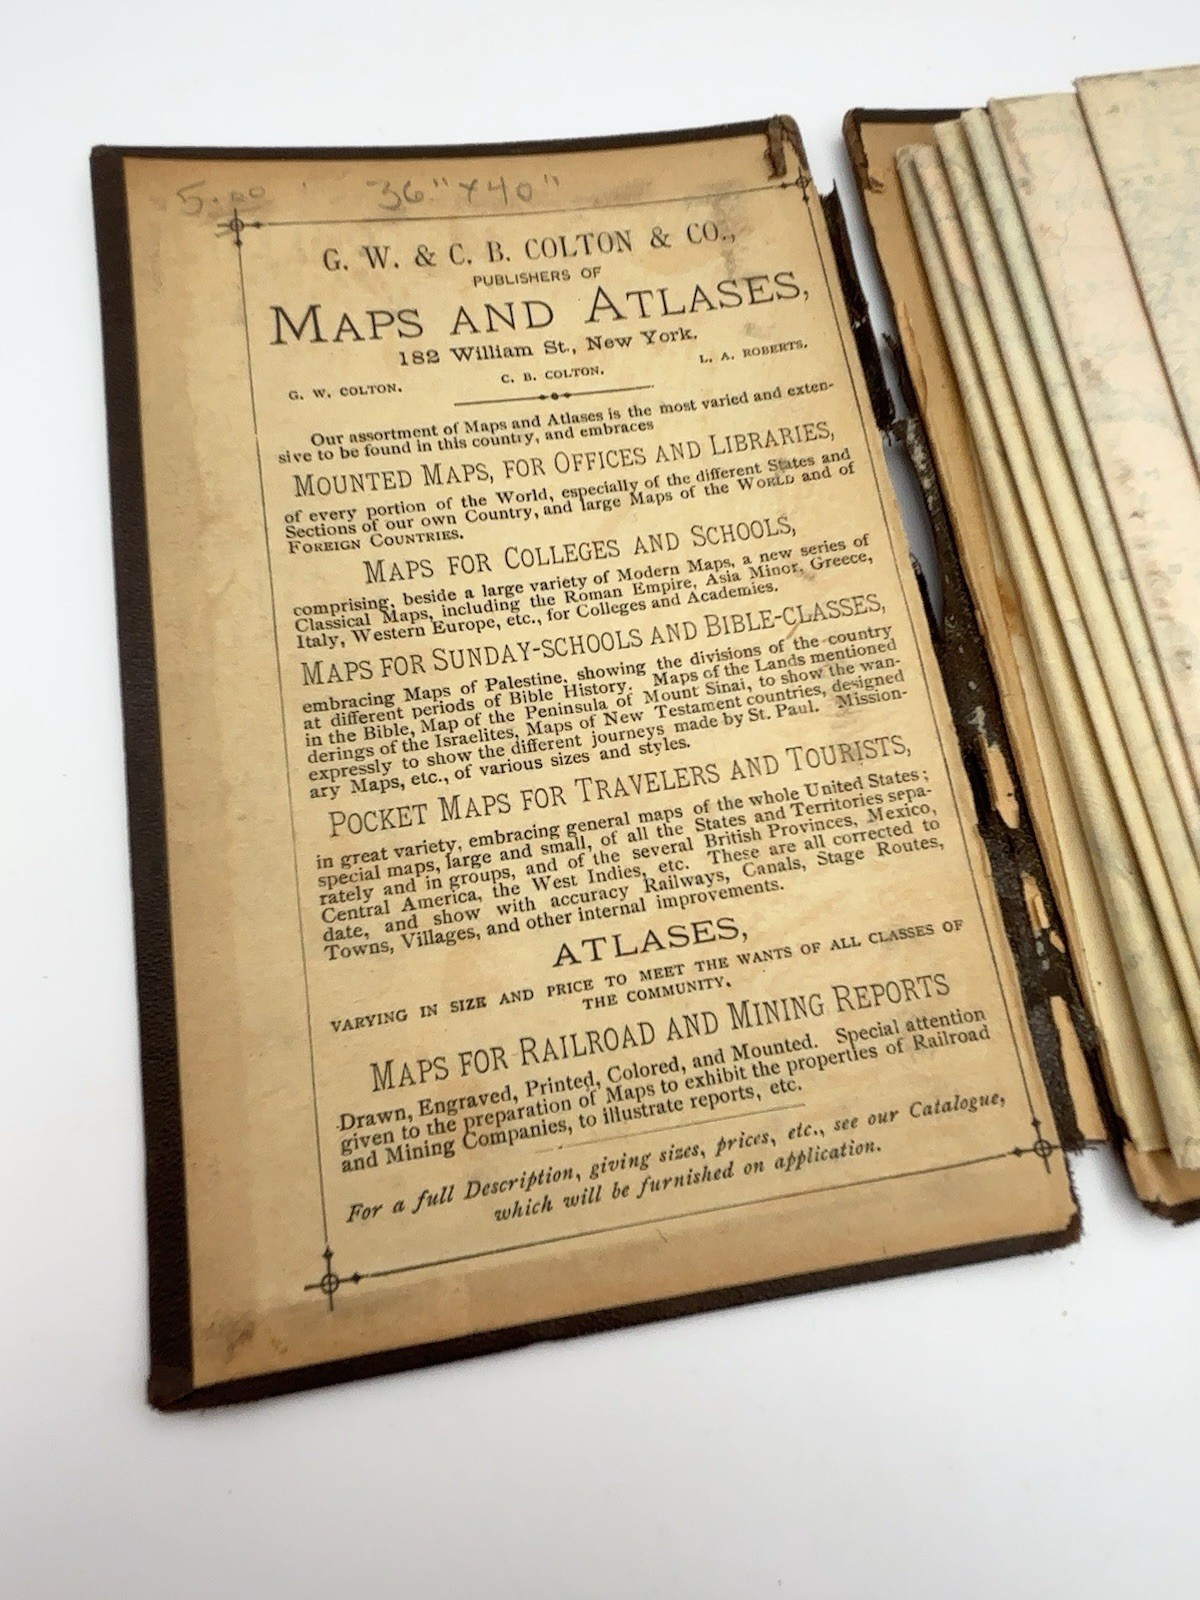 5.00 36" x 40"
G. W. & C. B. COLTON & CO.,
PUBLISHERS OF
MAPS AND ATLASES,
182 William St., New York.
G. W. COLTON. C. B. COLTON. L. A. ROBERTS.
Our assortment of Maps and Atlases is the most varied and exten-
sive to be found in this country, and embraces
MOUNTED MAPS, FOR OFFICES AND LIBRARIES,
of every portion of the World, especially of the different States and
Sections of our own Country, and large Maps of the WORLD and of
FOREIGN COUNTRIES.
MAPS FOR COLLEGES AND SCHOOLS,
comprising, beside a large variety of Modern Maps, a new series of
Classical Maps, including the Roman Empire, Asia Minor, Greece,
Italy, Western Europe, etc., for Colleges and Academies.
MAPS FOR SUNDAY-SCHOOLS AND BIBLE-CLASSES,
embracing Maps of Palestine, showing the divisions of the country
at different periods of Bible History. Maps of the Lands mentioned
in the Bible, Map of the Peninsula of Mount Sinai, to show the wan-
derings of the Israelites, Maps of New Testament countries, designed
expressly to show the different journeys made by St. Paul. Mission-
ary Maps, etc., of various sizes and styles.
POCKET MAPS FOR TRAVELERS AND TOURISTS,
in great variety, embracing general maps of the whole United States;
special maps, large and small, of all the States and Territories sepa-
rately and in groups, and of the several British Provinces, Mexico,
Central America, the West Indies, etc. These are all corrected to
date, and show with accuracy Railways, Canals, Stage Routes,
Towns, Villages, and other internal improvements.
ATLASES,
VARYING IN SIZE AND PRICE TO MEET THE WANTS OF ALL CLASSES OF
THE COMMUNITY.
MAPS FOR RAILROAD AND MINING REPORTS
Drawn, Engraved, Printed, Colored, and Mounted. Special attention
given to the preparation of Maps to exhibit the properties of Railroad
and Mining Companies, to illustrate reports, etc.
For a full Description, giving sizes, prices, etc., see our Catalogue,
which will be furnished on application.